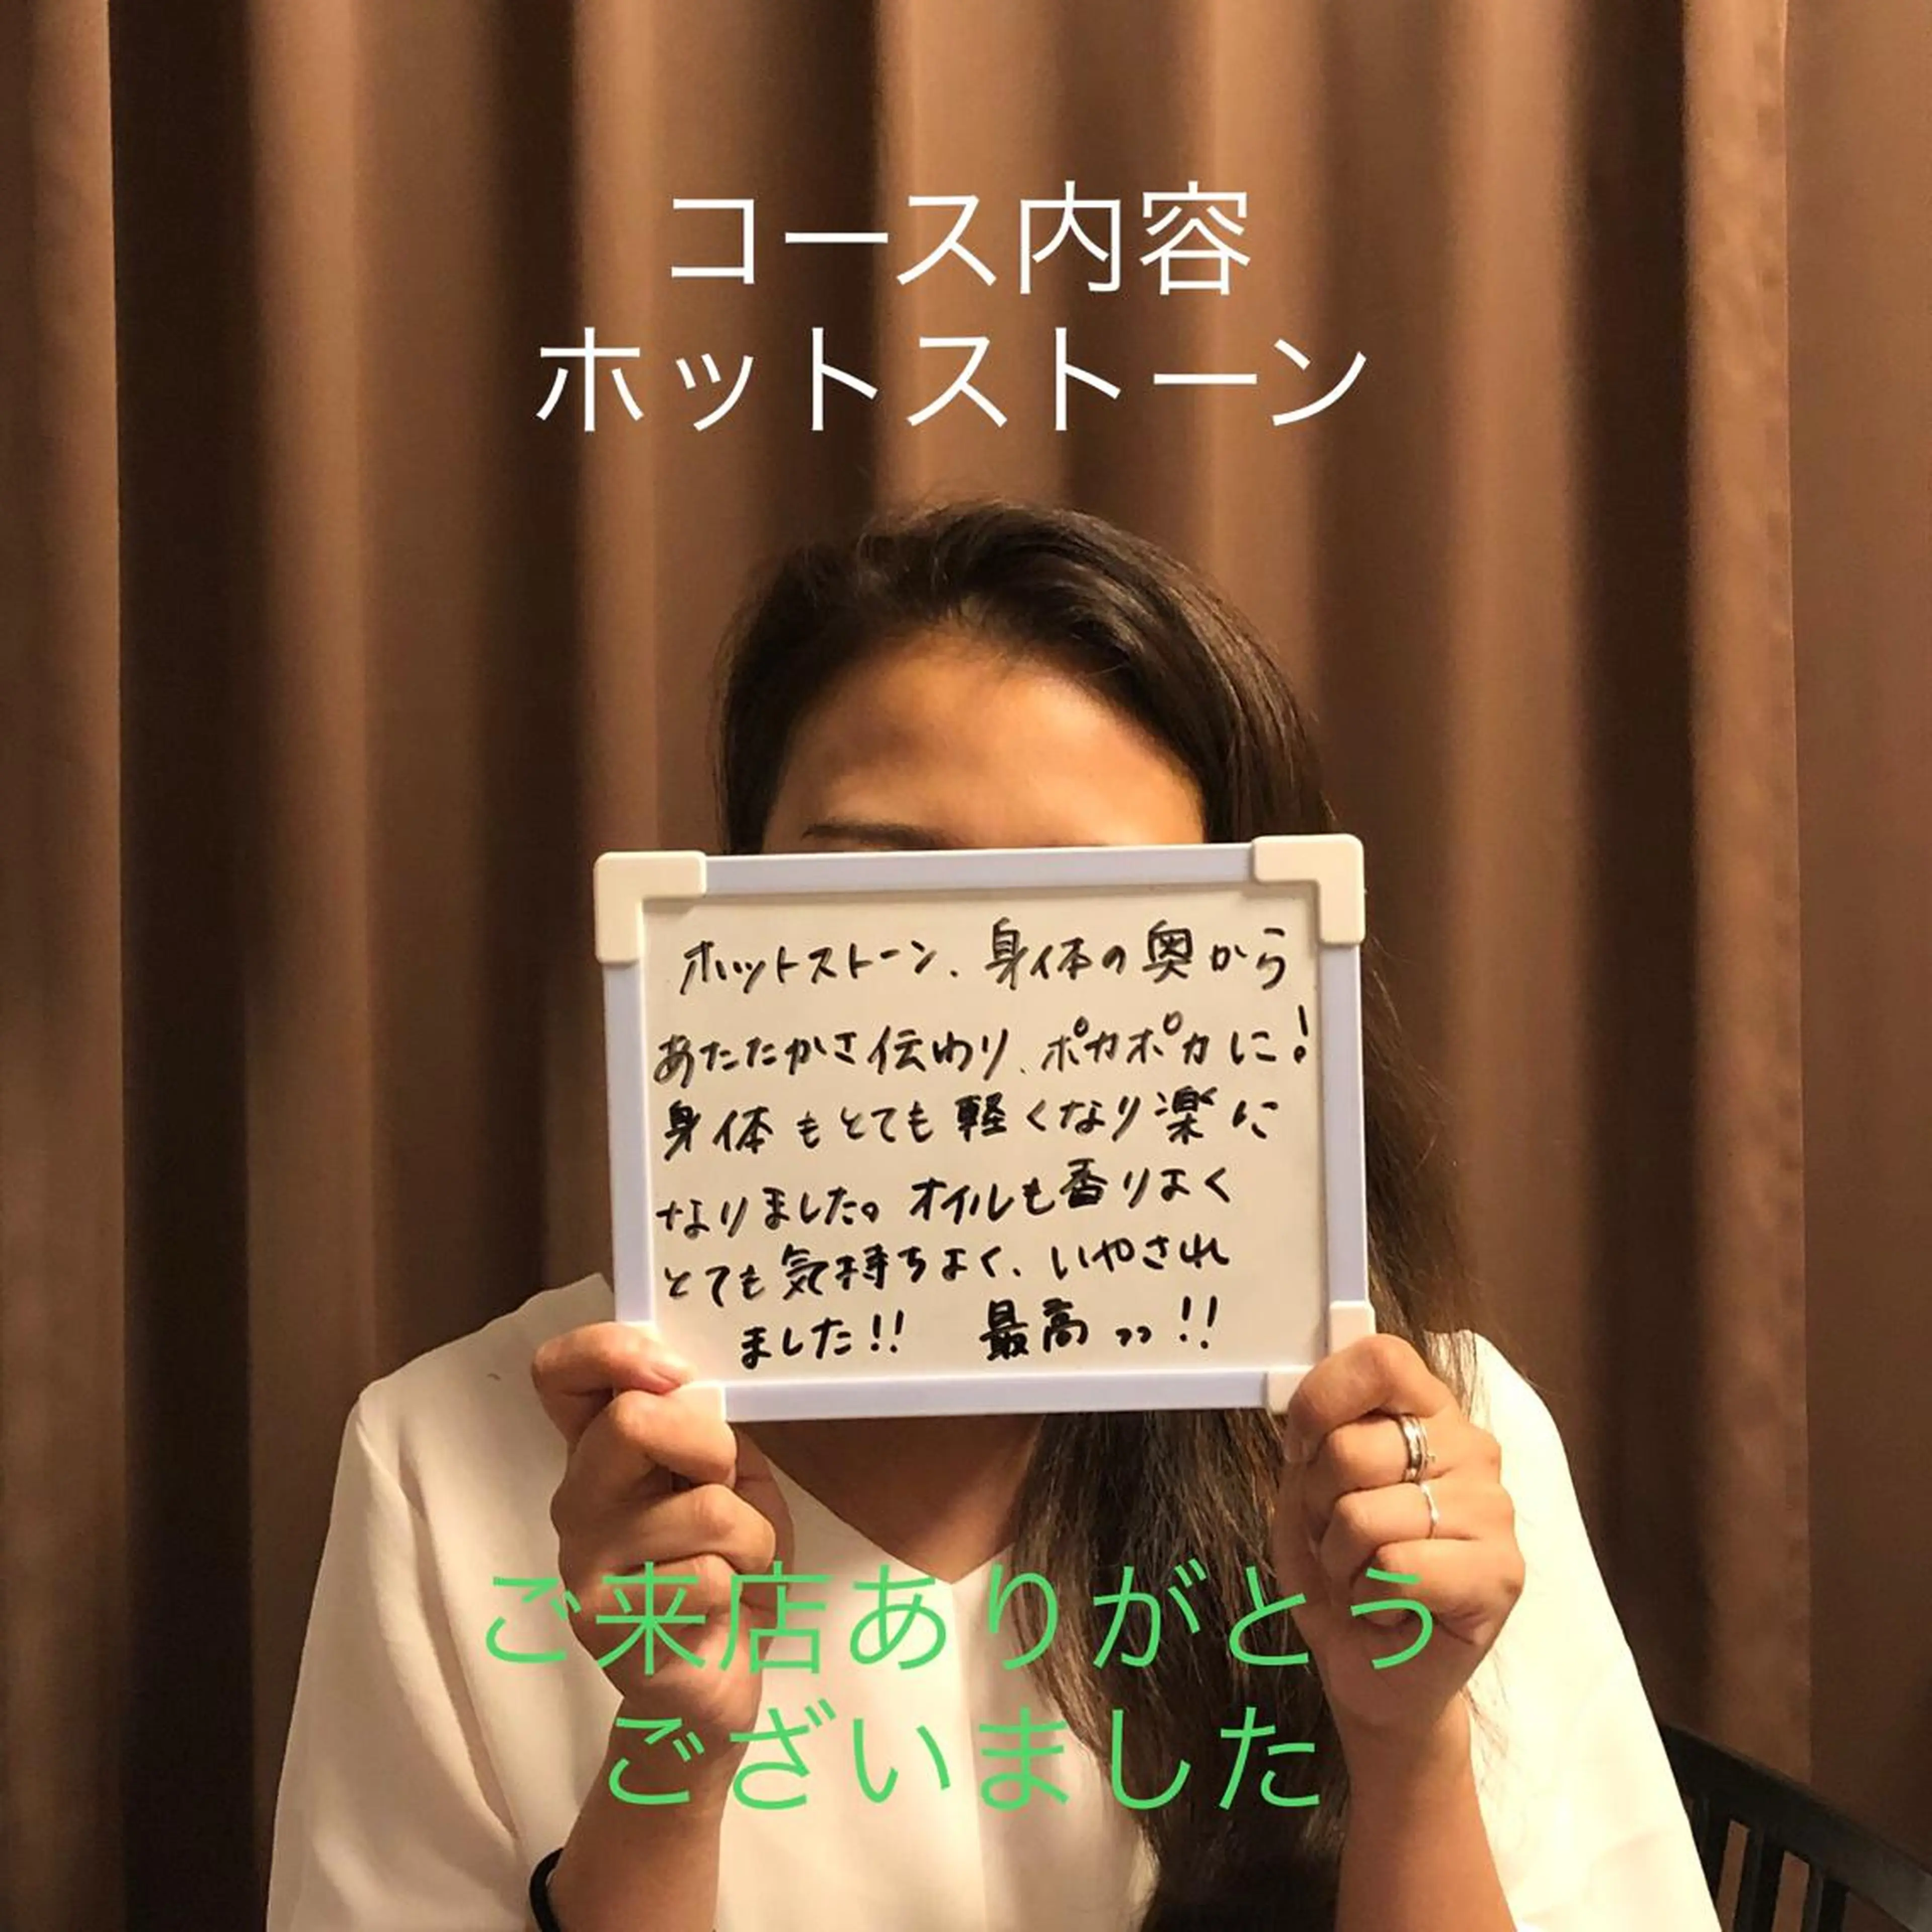 コース内容
ホットストーン
ホットストーン、身体の奥から
あたたかさ伝わり、ポカポカに!
身体もとても軽くなり楽に
なりました。オイルも香りよく
とても気持ちよく、いやされ
ました!! 最高ッッ!!
ご来店ありがとう
ございました